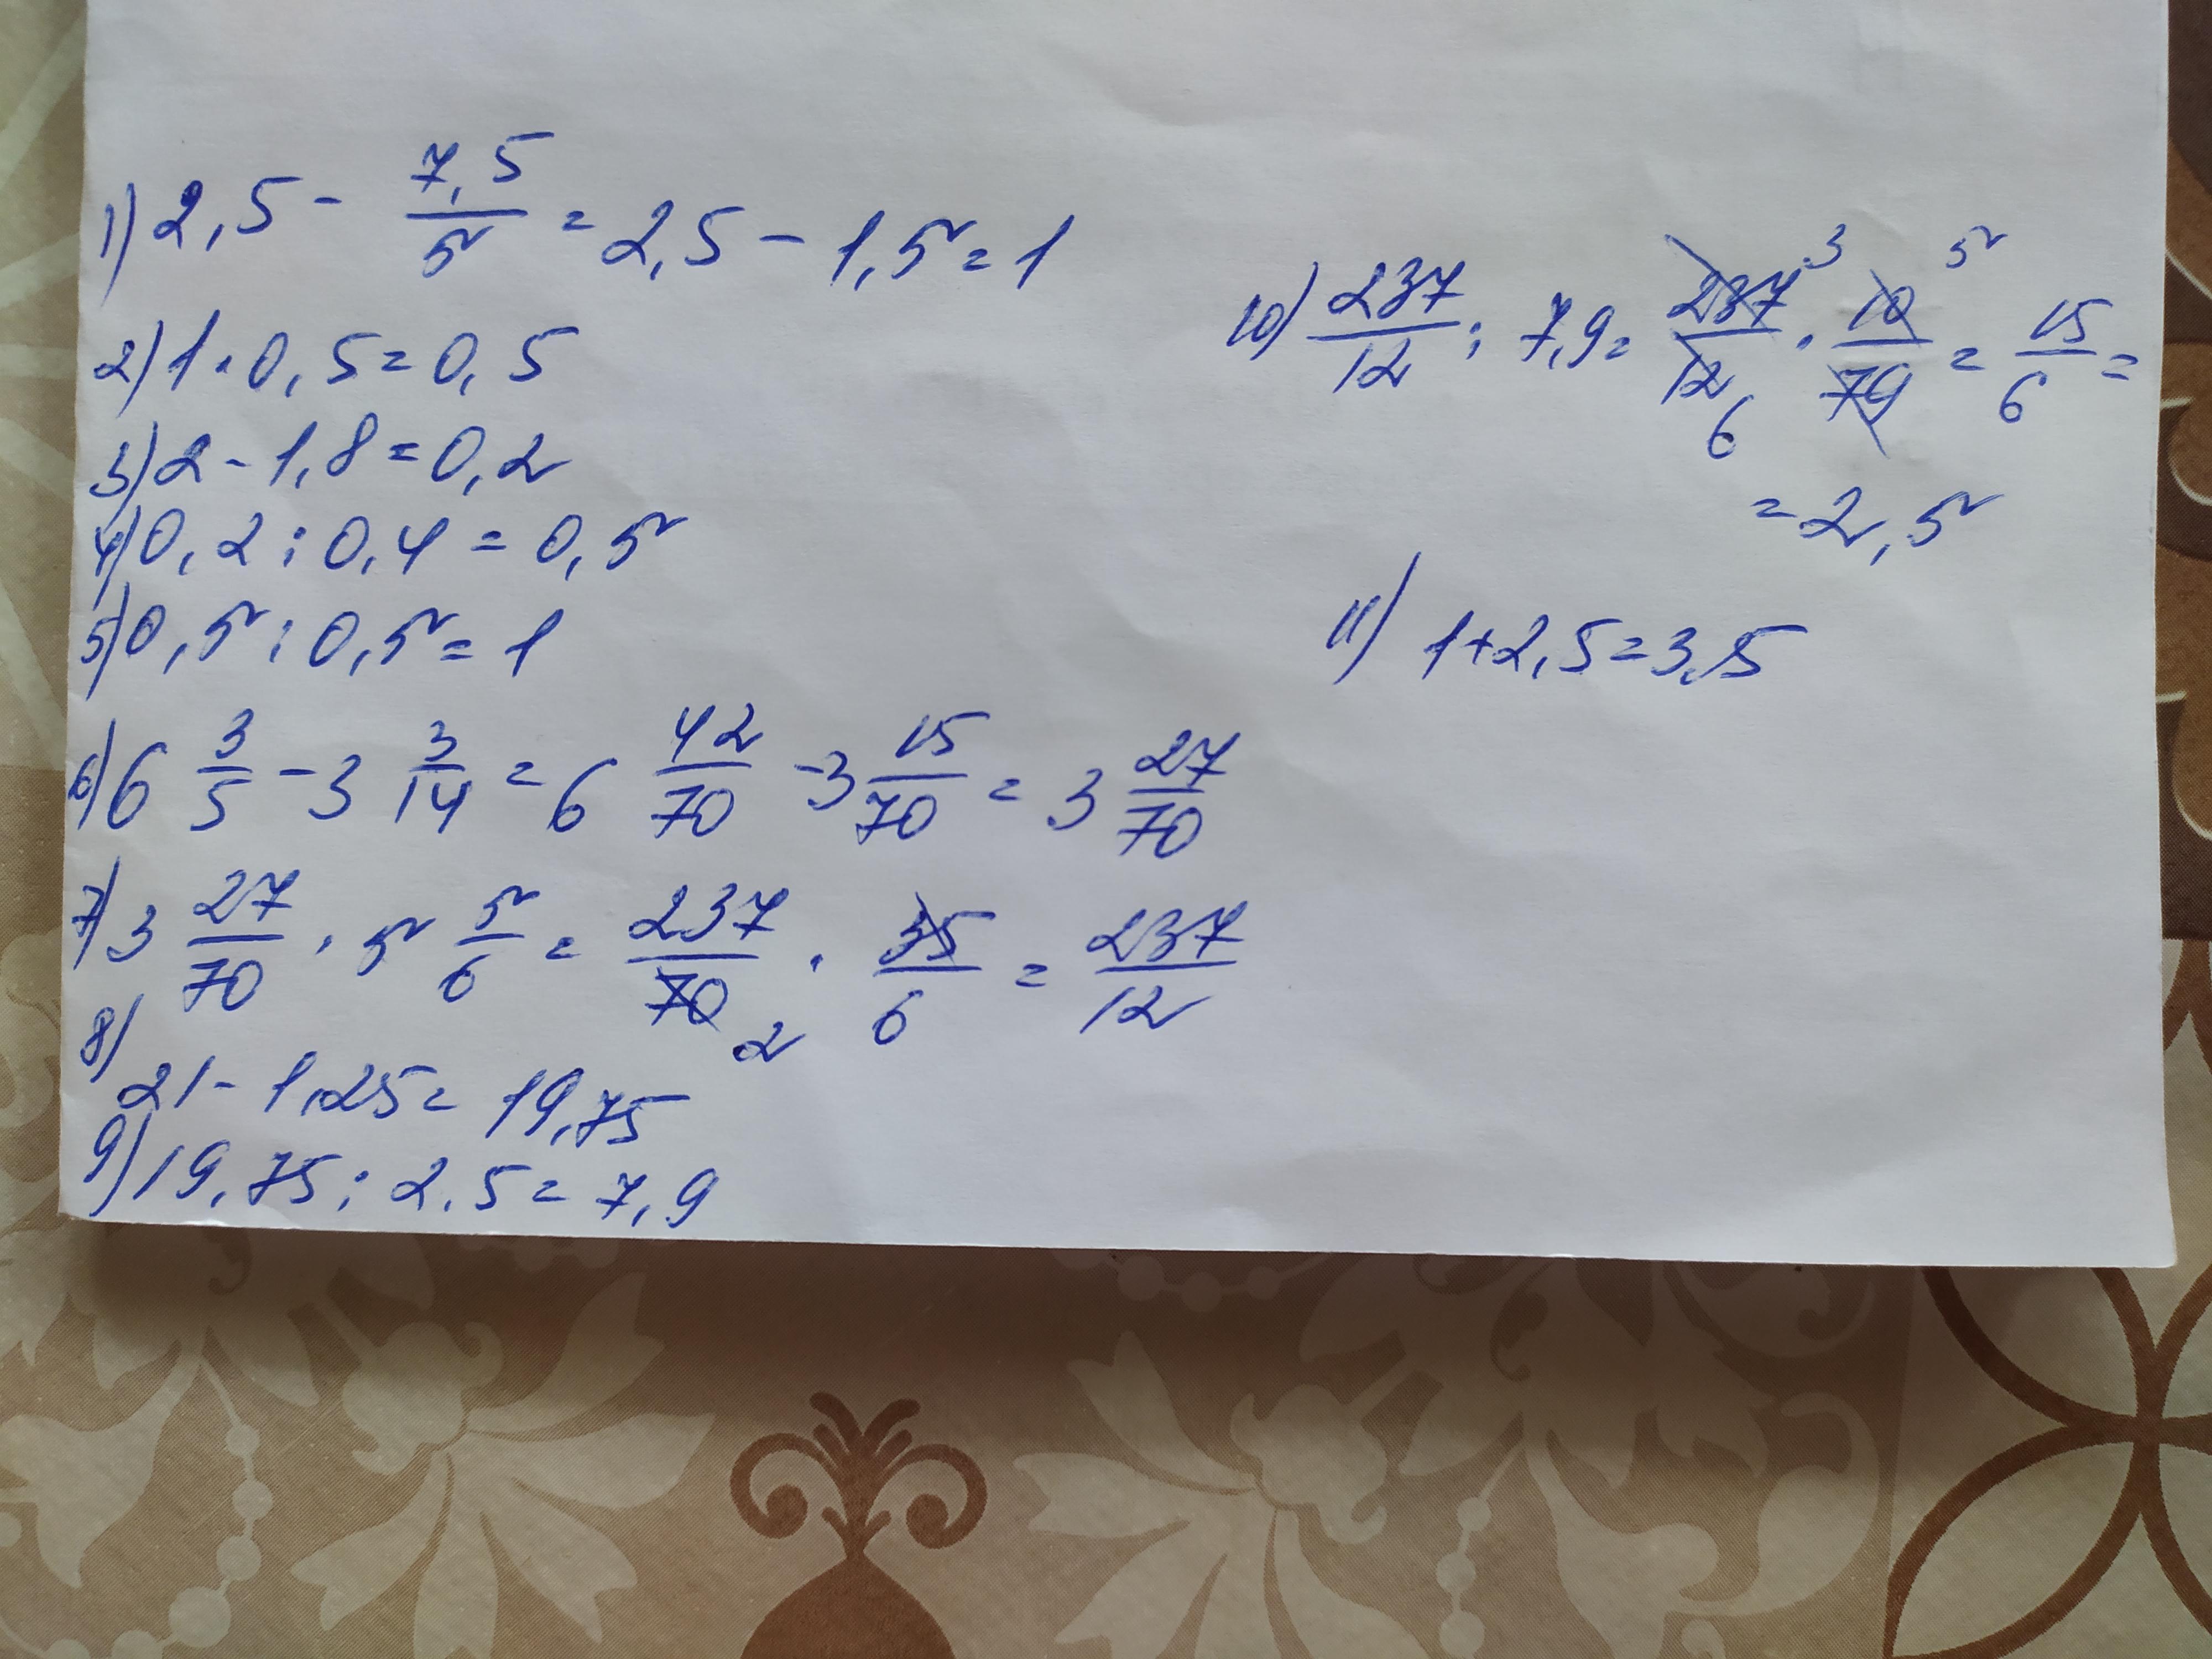 1) 2,5 - 7,5/5 = 2,5 - 1,5 = 1
2) 1 · 0,5 = 0,5
3) 2 - 1,8 = 0,2
4) 0,2 : 0,4 = 0,5
5) 0,5 : 0,5 = 1
6) 6 3/5 - 3 3/14 = 6 42/70 - 3 15/70 = 3 27/70
7) 3 27/70 · 5 5/6 = 237/70 2 · 35/6 = 237/12
8)
21 - 1,25 = 19,75
9) 19,75 : 2,5 = 7,9
10) 237/12 : 7,9 = 237 3/12 6 · 10 5/79 = 15/6 =
= 2,5
11) 1 + 2,5 = 3,5